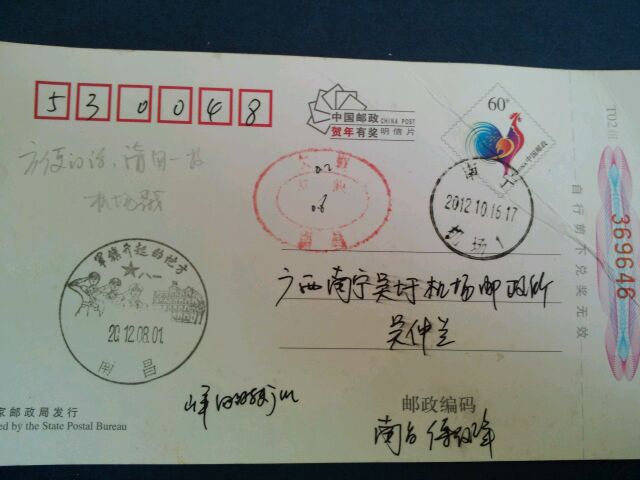 530048
中国邮政 CHINA POST
贺年有奖 明信片
60分
中国邮政
T02
369646
自行剪下兑奖无效
方便的话,请用一枚
机场戳
0.2
0.6
南宁
2012.10.16.17
机场1
军旗升起的地方
八一
2012.08.01
南昌
广西南宁吴圩机场邮政所
吴仲兰
家邮政局发行
ed by the State Postal Bureau
邮政编码
南昌